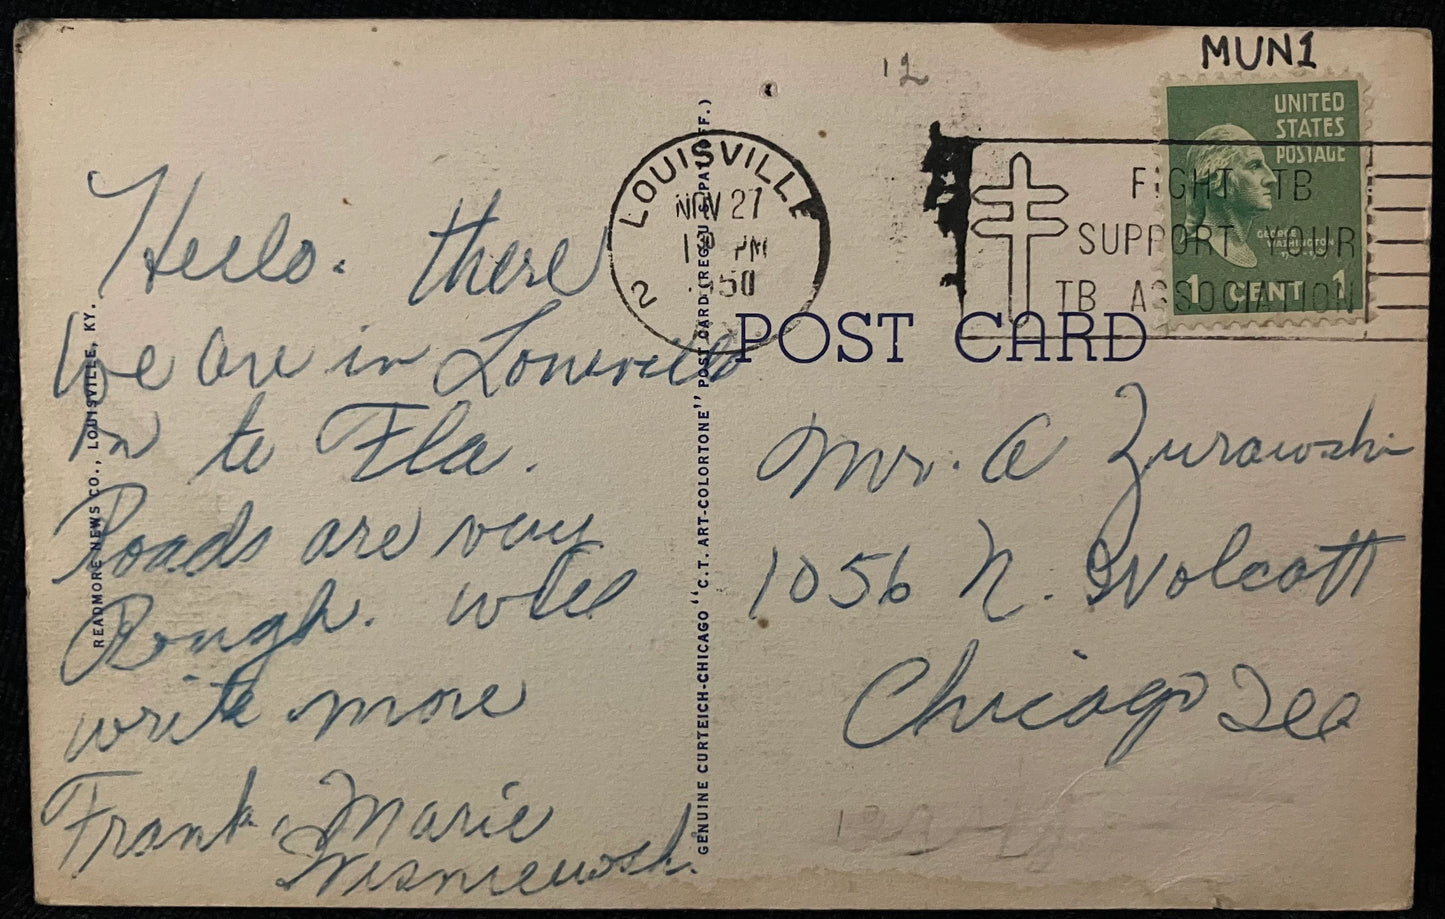 MUN1
12
UNITED
STATES
POSTAGE
GEORGE
WASHINGTON
1 CENT 1
LOUISVILLE
NOV 27
PM
1950
2
FIGHT TB
SUPPORT YOUR
TB ASSOCIATION
POST CARD
Hello. there
We are in Louisville
to Fla.
Roads are very
Rough. will
write more
Frank, Marie
Wisniewski
READMORE NEWS CO., LOUISVILLE, KY.
GENUINE CURTEICH-CHICAGO "C.T. ART-COLORTONE" POST CARD (REG. U.S. PAT. OFF.)
Mr. A Zurawski
1056 N. Wolcott
Chicago Ill